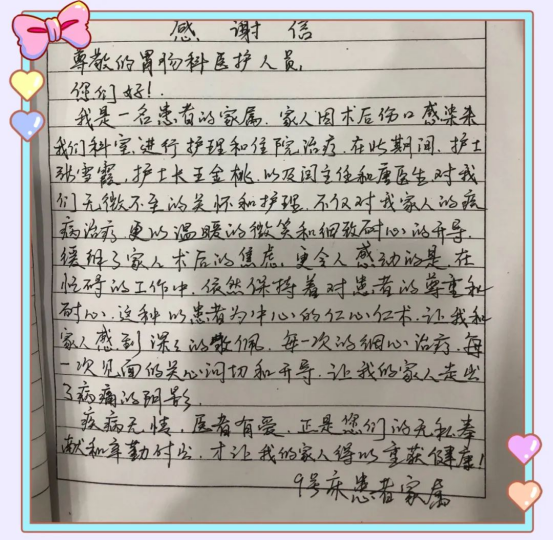 感谢信
尊敬的胃肠科医护人员,
您们好!
我是一名患者的家属,家人因术后伤口感染来
我们科室进行护理和住院治疗,在此期间,护士
张雪霞,护士长王金桃,以及闫主任和唐医生对我
们无微不至的关怀和护理,不仅对我家人的疾
病治疗,更以温暖的微笑和细致耐心的开导,
缓解了家人术后的焦虑,更令人感动的是,在
忙碌的工作中,依然保持着对患者的尊重和
耐心,这种以患者为中心的仁心仁术,让我和
家人感到深深的敬佩,每一次的细心治疗,每
一次见面的关心问切和开导,让我的家人走出
了病痛的阴影.
疾病无情,医者有爱,正是您们的无私奉
献和辛勤付出,才让我的家人得以重获健康!
9号床患者家属